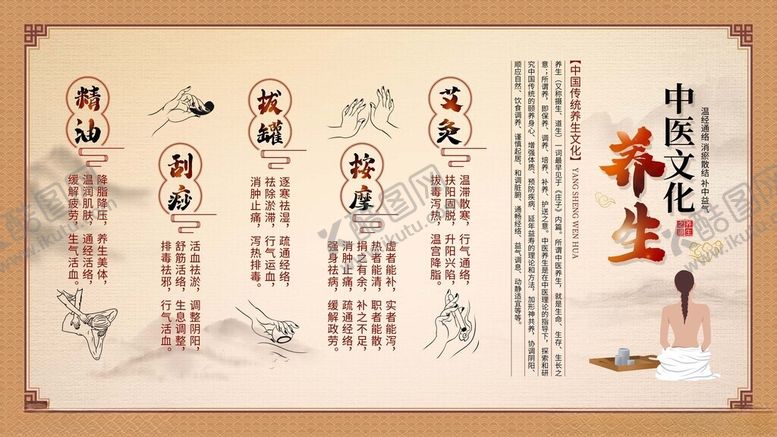 温经通络 消瘀散结 补中益气
中医文化
养生
【中国传统养生文化】
YANG SHENG WEN HUA
养生（又称摄生、道生）一词最早见于《庄子》内篇。所谓中医养生，就是生命、生存、生长之
意；所谓养，即保养、调养、培养、补养、护送之意。中医养生是在中医理论的指导下，探索和研
究中国传统的颐养身心、增强体质、预防疾病、延年益寿的理论和方法，加形神共养，协调阴阳、
顺应自然、饮食调养、谨慎起居、和调脏腑、通畅经络、益气调息、动静适宜等等。
艾灸
温滞散寒，行气通络，
扶阳固脱，升阳兴陷，
拔毒泻热，温宫降脂。
按摩
虚者能补，实者能泻，
热者能清，职者能散，
捐之有余，补之不足，
消肿止痛，疏通经络，
强身祛病，缓解政劳。
拔罐
逐寒祛湿，疏通经络，
祛除淤滞，行气运血，
消肿止痛，泻热排毒。
刮痧
活血祛淤，调整阴阳，
舒筋活络，生息调整，
排毒祛邪，行气活血。
精油
降脂降压，养生美体，
温润肌肤，通经活络，
缓解疲劳，生气活血。